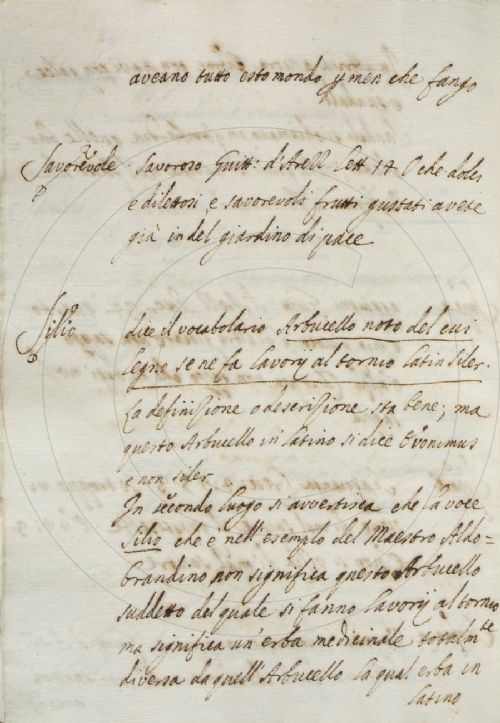 aveano tutto esto mondo p men che fango
Savorevole Savoroso Guitt: d'Arezz Lett 14 O che dolci
e dilettosi e savorevoli frutti gustati avete
già in del giardino di pace
Silio dice il vocabolario Arbucello noto del cui
legno se ne fa lavorij al tornio latin siler.
La definizione o descrizione sta bene; ma
questo Arbucello in latino si dice Evonimus
e non siler
In secondo luogo si avvertisca che la voce
Silio che è nell'esempio del Maestro Aldo=
brandino non significa questo Arbucello
suddetto del quale si fanno lavorij al tornio
ma significa un'erba medicinale totalm.te
diversa da quell'Arbucello la qual erba in
latino